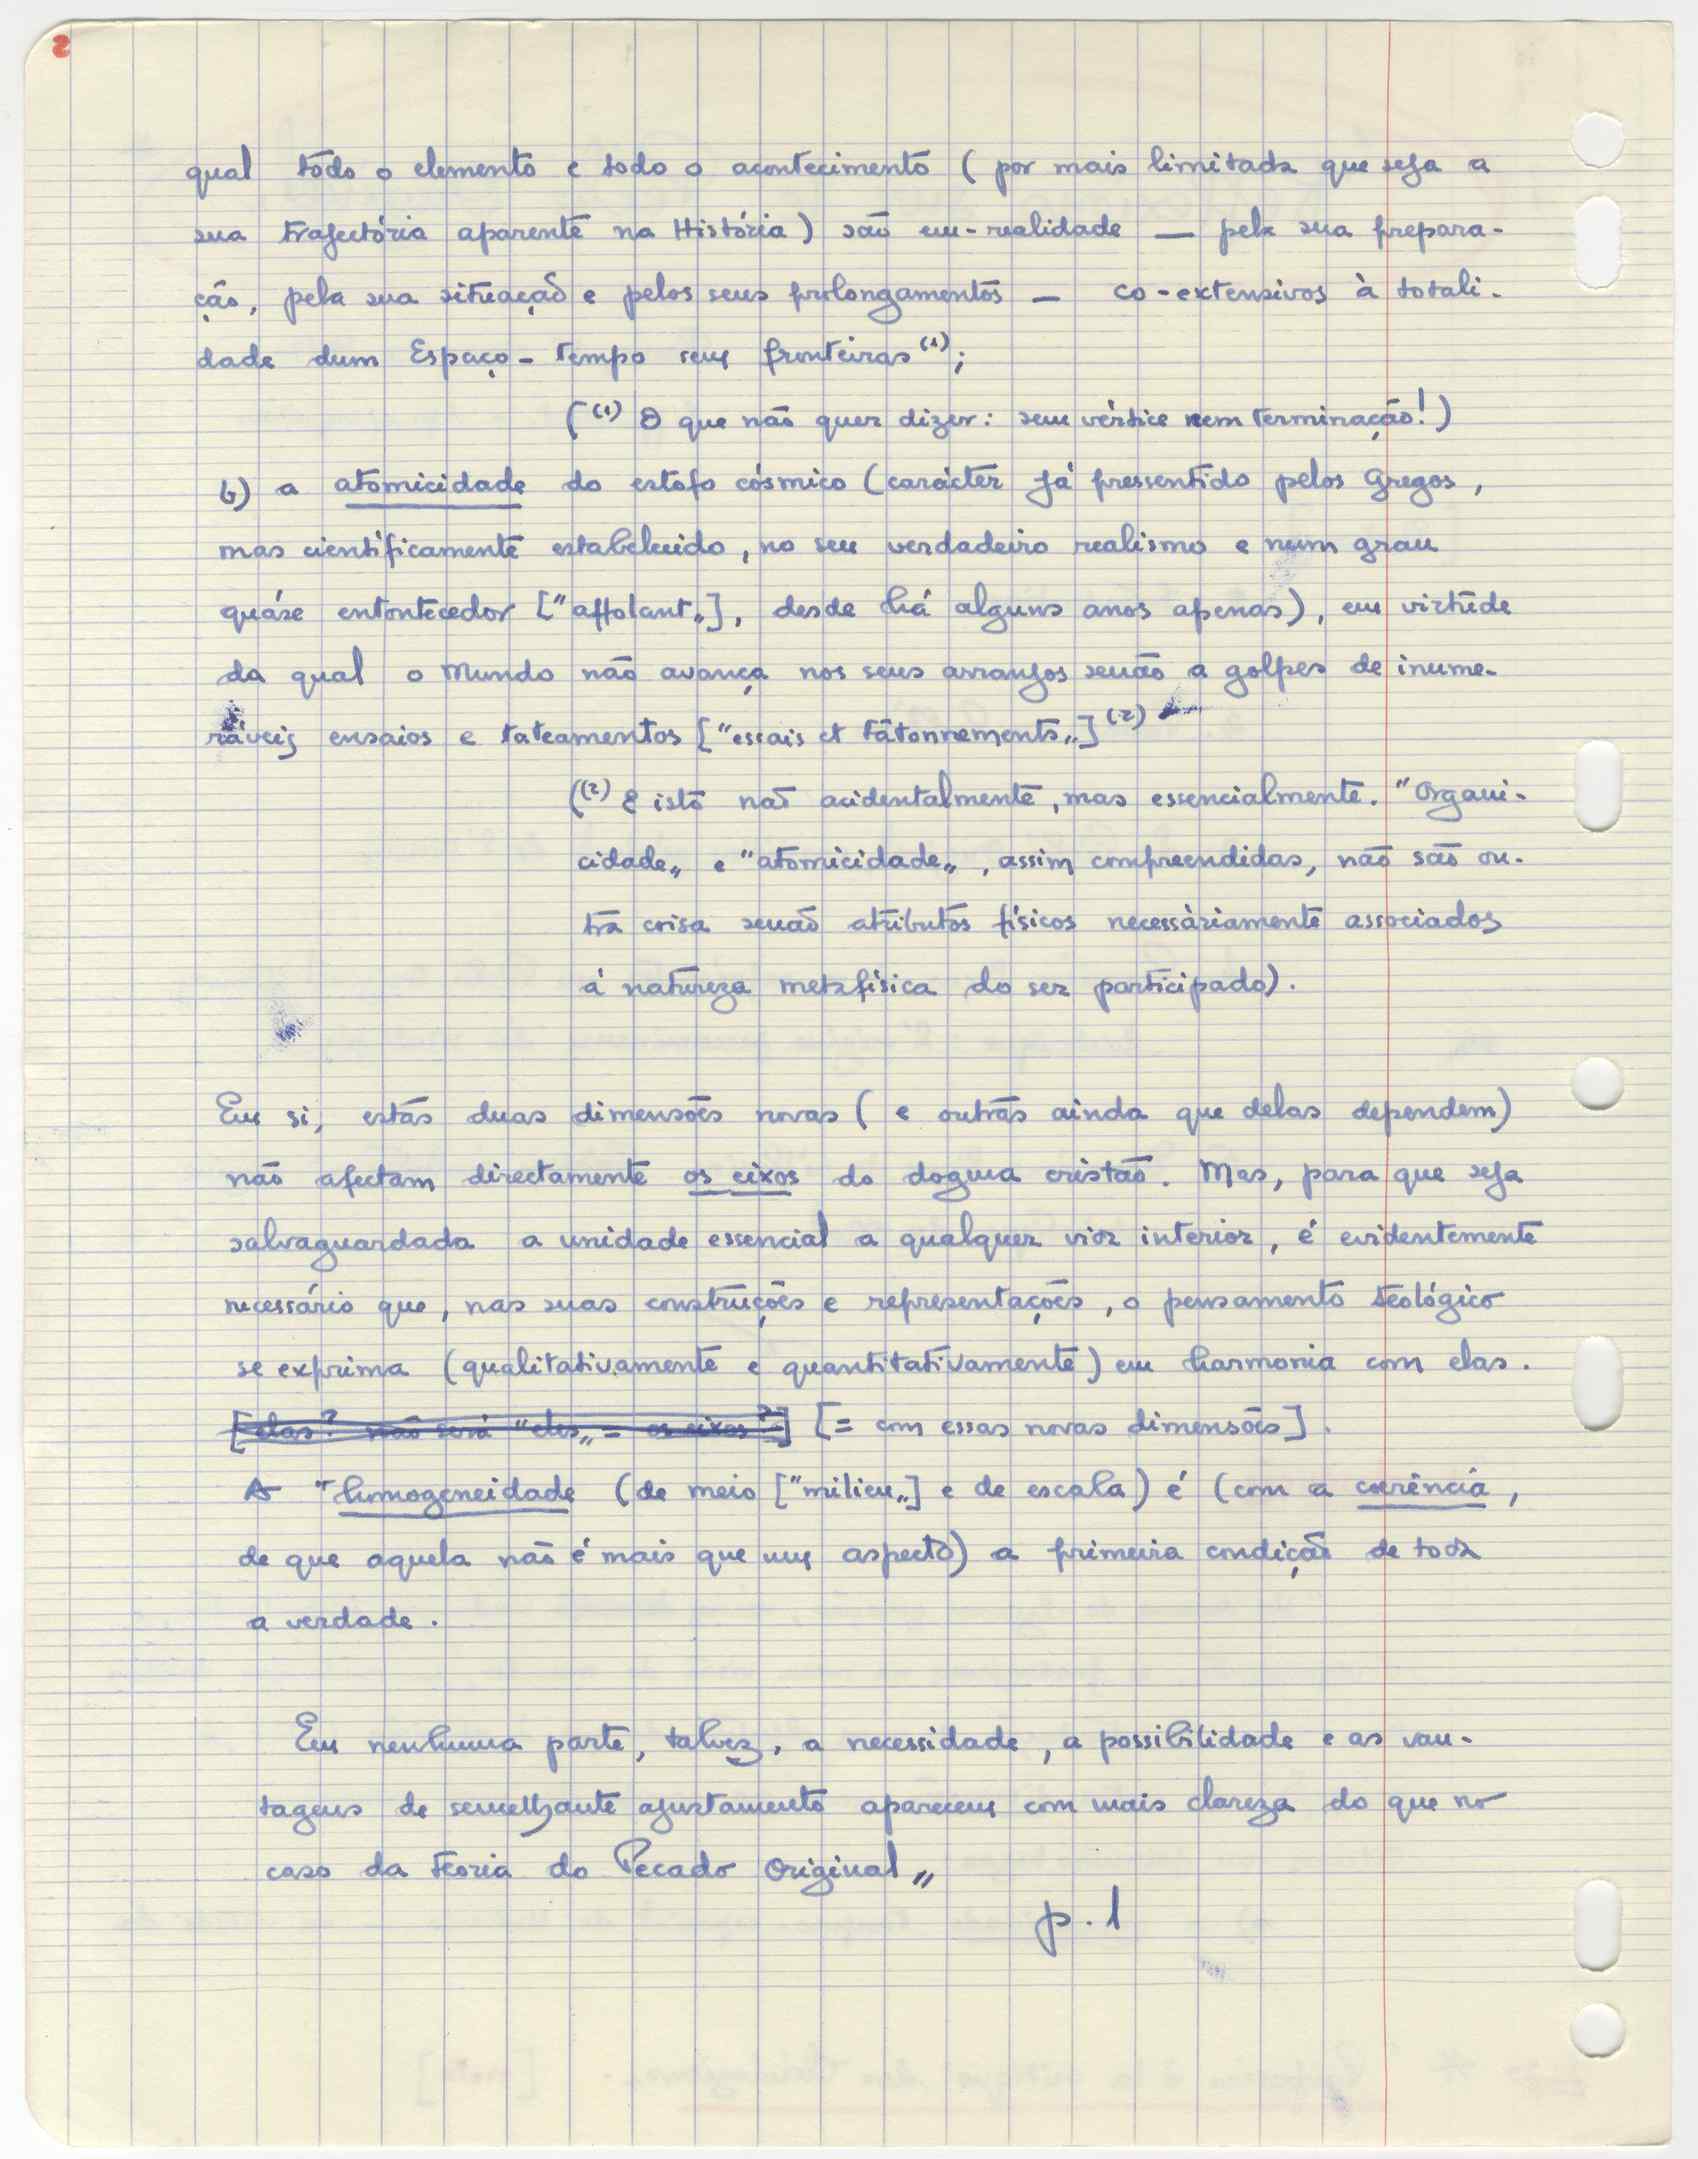 2
qual todo o elemento e todo o acontecimento (por mais limitada que seja a
sua trajectória aparente na História) são em-realidade — pela sua prepara-
ção, pela sua situação e pelos seus prolongamentos — co-extensivos à totali-
dade dum Espaço-tempo sem fronteiras (1);
((1) O que não quer dizer: sem vértice nem terminação!)
b) a atomicidade do estofo cósmico (carácter já pressentido pelos Gregos,
mas cientificamente estabelecido, no seu verdadeiro realismo e num grau
quáse entontecedor ["affolant„], desde há alguns anos apenas), em virtude
da qual o Mundo não avança nos seus arranjos senão a golpes de inume-
ráveis ensaios e tateamentos ["essais et tâtonnements„] (2)
((2) E isto não acidentalmente, mas essencialmente. "Organi-
cidade„ e "atomicidade„, assim compreendidas, não são ou-
tra coisa senão atributos físicos necessàriamente associados
á natureza metafísica do ser participado).
Em si, estas duas dimensões novas (e outras ainda que delas dependem)
não afectam directamente os eixos do dogma cristão. Mas, para que seja
salvaguardada a unidade essencial a qualquer vida interior, é evidentemente
necessário que, nas suas construções e representações, o pensamento teológico
se exprima (qualitativamente e quantitativamente) em harmonia com elas.
[elas? não será "eles„ = os eixos?] [= com essas novas dimensões].
A "homogeneidade (de meio ["milieu„] e de escala) é (com a coerência,
de que aquela não é mais que um aspecto) a primeira condição de toda
a verdade.
Em nenhuma parte, talvez, a necessidade, a possibilidade e as van-
tagens de semelhante ajustamento aparecem com mais clareza do que no
caso da teoria do Pecado Original„
p. 1